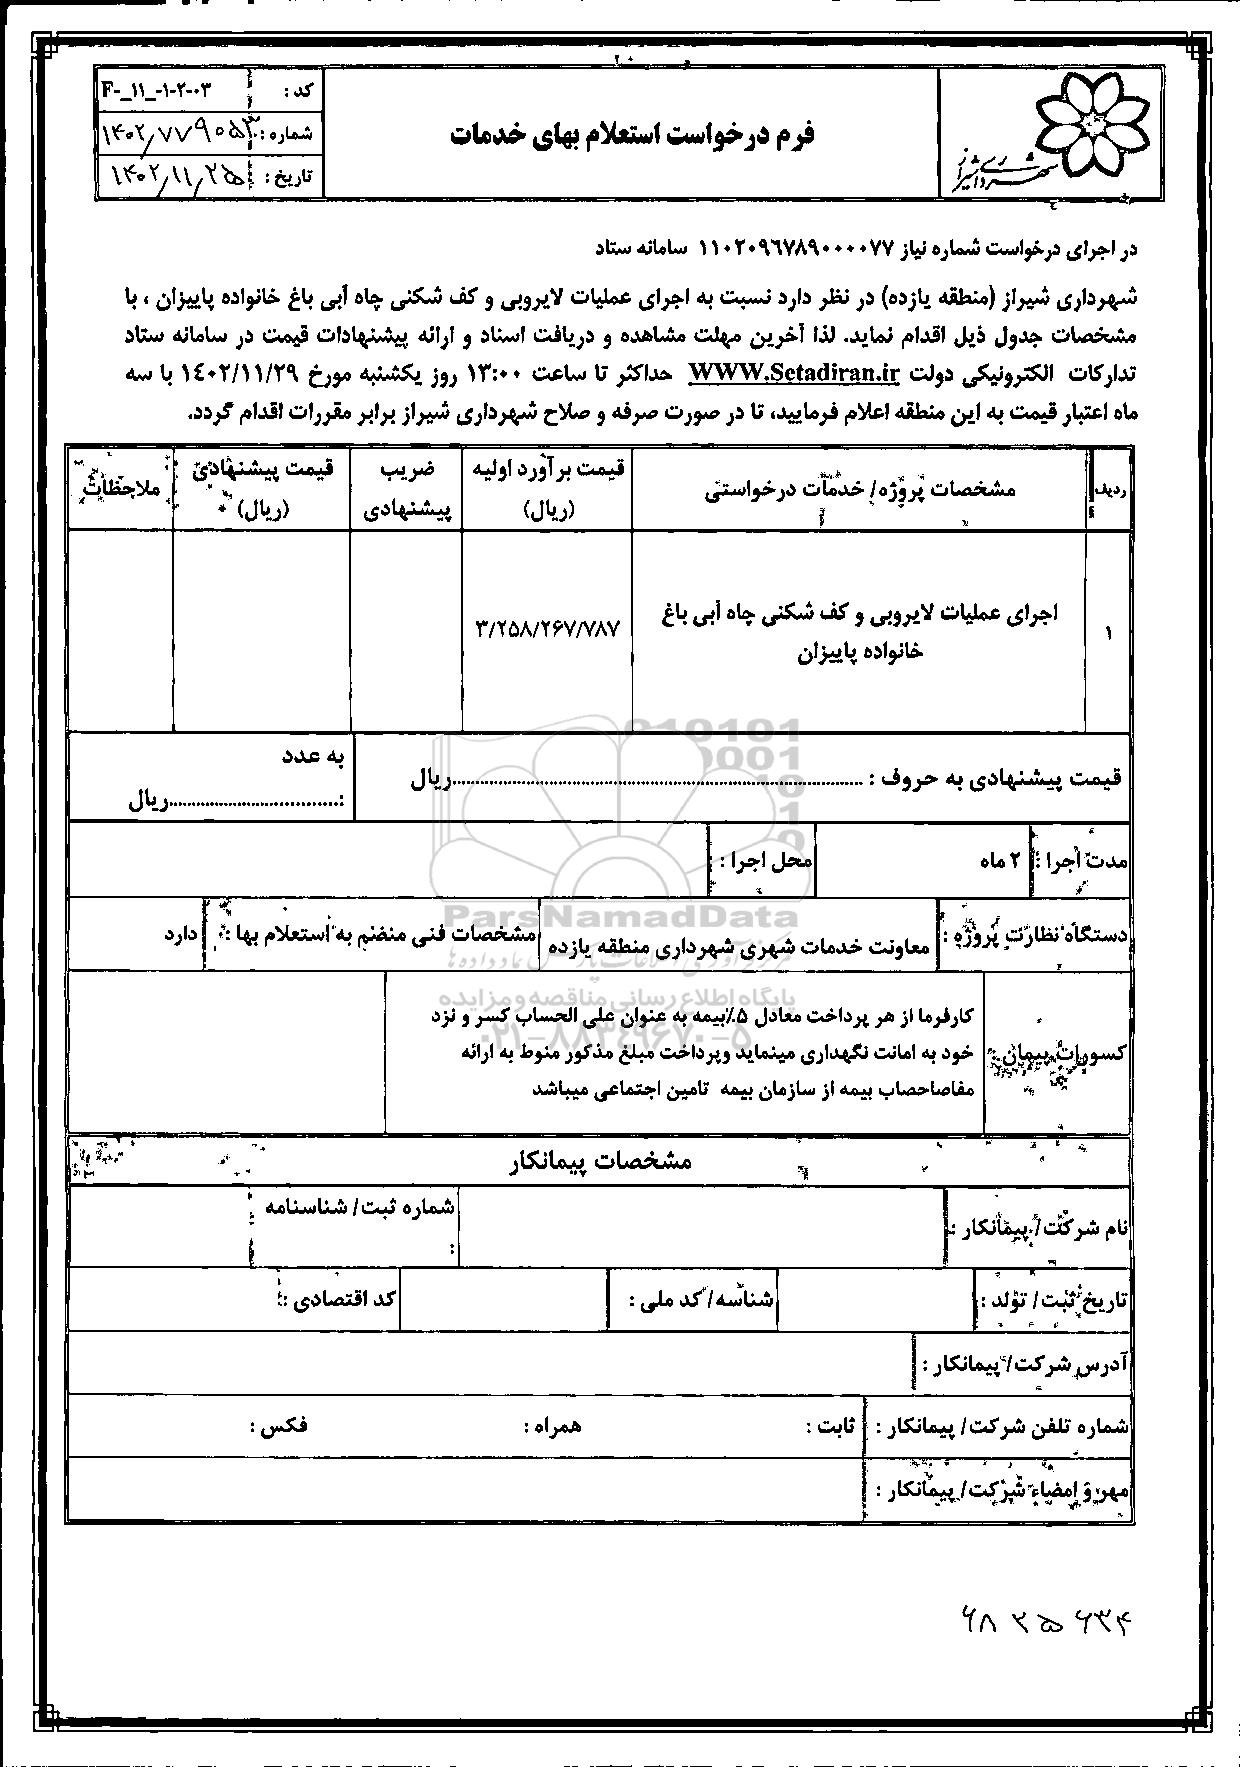 شهرداری شیراز
فرم درخواست استعلام بهای خدمات
کد : F-_۱۱_-۱-۲-۰۳
شماره : ۱۴۰۲/۷۷۹۰۵۳
تاریخ : ۱۴۰۲/۱۱/۲۵
در اجرای درخواست شماره نیاز ۱۱۰۲۰۹۶۷۸۹۰۰۰۰۷۷ سامانه ستاد
شهرداری شیراز (منطقه یازده) در نظر دارد نسبت به اجرای عملیات لایروبی و کف شکنی چاه آبی باغ خانواده پاییزان ، با
مشخصات جدول ذیل اقدام نماید. لذا آخرین مهلت مشاهده و دریافت اسناد و ارائه پیشنهادات قیمت در سامانه ستاد
تدارکات الکترونیکی دولت WWW.Setadiran.ir حداکثر تا ساعت ۱۳:۰۰ روز یکشنبه مورخ ۱٤۰۲/۱۱/۲۹ با سه
ماه اعتبار قیمت به این منطقه اعلام فرمایید، تا در صورت صرفه و صلاح شهرداری شیراز برابر مقررات اقدام گردد.
ردیف مشخصات پروژه/ خدمات درخواستی قیمت برآورد اولیه (ریال) ضریب پیشنهادی قیمت پیشنهادی (ریال) ملاحظات
۱ اجرای عملیات لایروبی و کف شکنی چاه آبی باغ خانواده پاییزان ۳/۲۵۸/۲۶۷/۷۸۷
قیمت پیشنهادی به حروف : ........................................ریال به عدد
:................................ریال
مدت اجرا : ۲ ماه محل اجرا :
دستگاه نظارت پروژه : معاونت خدمات شهری شهرداری منطقه یازده مشخصات فنی منضم به استعلام بها : دارد
کسورات پیمان کارفرما از هر پرداخت معادل ۵٪بیمه به عنوان علی الحساب کسر و نزد
خود به امانت نگهداری مینماید وپرداخت مبلغ مذکور منوط به ارائه
مفاصاحصاب بیمه از سازمان بیمه تامین اجتماعی میباشد
مشخصات پیمانکار
نام شرکت/ پیمانکار : شماره ثبت/ شناسنامه :
تاریخ ثبت/ تولد : شناسه/ کد ملی : کد اقتصادی :
آدرس شرکت/ پیمانکار :
شماره تلفن شرکت/ پیمانکار : ثابت : همراه : فکس :
مهر و امضاء شرکت/ پیمانکار :
ParsNamadData
پایگاه اطلاع رسانی مناقصه و مزایده
۰۲۱-۸۸۳۴۹۶۷۰-۵